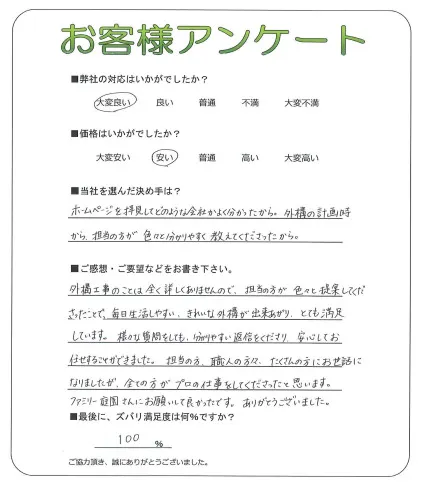 お客様アンケート
■弊社の対応はいかがでしたか?
大変良い 良い 普通 不満 大変不満
■価格はいかがでしたか?
大変安い 安い 普通 高い 大変高い
■当社を選んだ決め手は?
ホームページを拝見してどのような会社かよく分かったから。外構の計画時
から、担当の方が色々と分かりやすく教えてくださったから。
■ご感想・ご要望などをお書き下さい。
外構工事のことは全く詳しくありませんので、担当の方が色々と提案してくだ
さったことで、毎日生活しやすい、きれいな外構が出来あがり、とても満足
しています。様々な質問をしても、分かりやすい返信をくださり、安心してお
任せすることができました。担当の方、職人の方々、たくさんの方にお世話に
なりましたが、全ての方がプロの仕事をしてくださったと思います。
ファミリー庭園さんにお願いして良かったです。ありがとうございました。
■最後に、ズバリ満足度は何%ですか?
100 %
ご協力頂き、誠にありがとうございました。